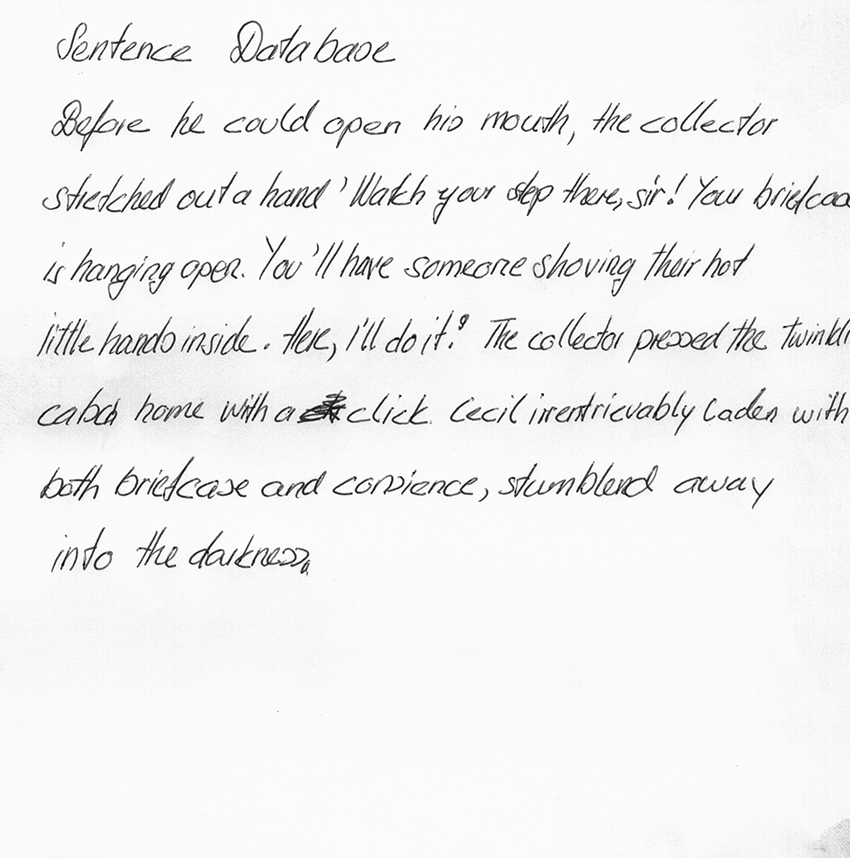 Sentence Database
Before he could open his mouth, the collector
stretched out a hand 'Watch your step there, sir! Your
is hanging open. You'll have someone shoving their hot
little hands inside. Here, I'll do it!' The collector pressed the
home with a click. Cecil irrentrievably laden with
both briefcase and consience, stumblend away
into the darkness.